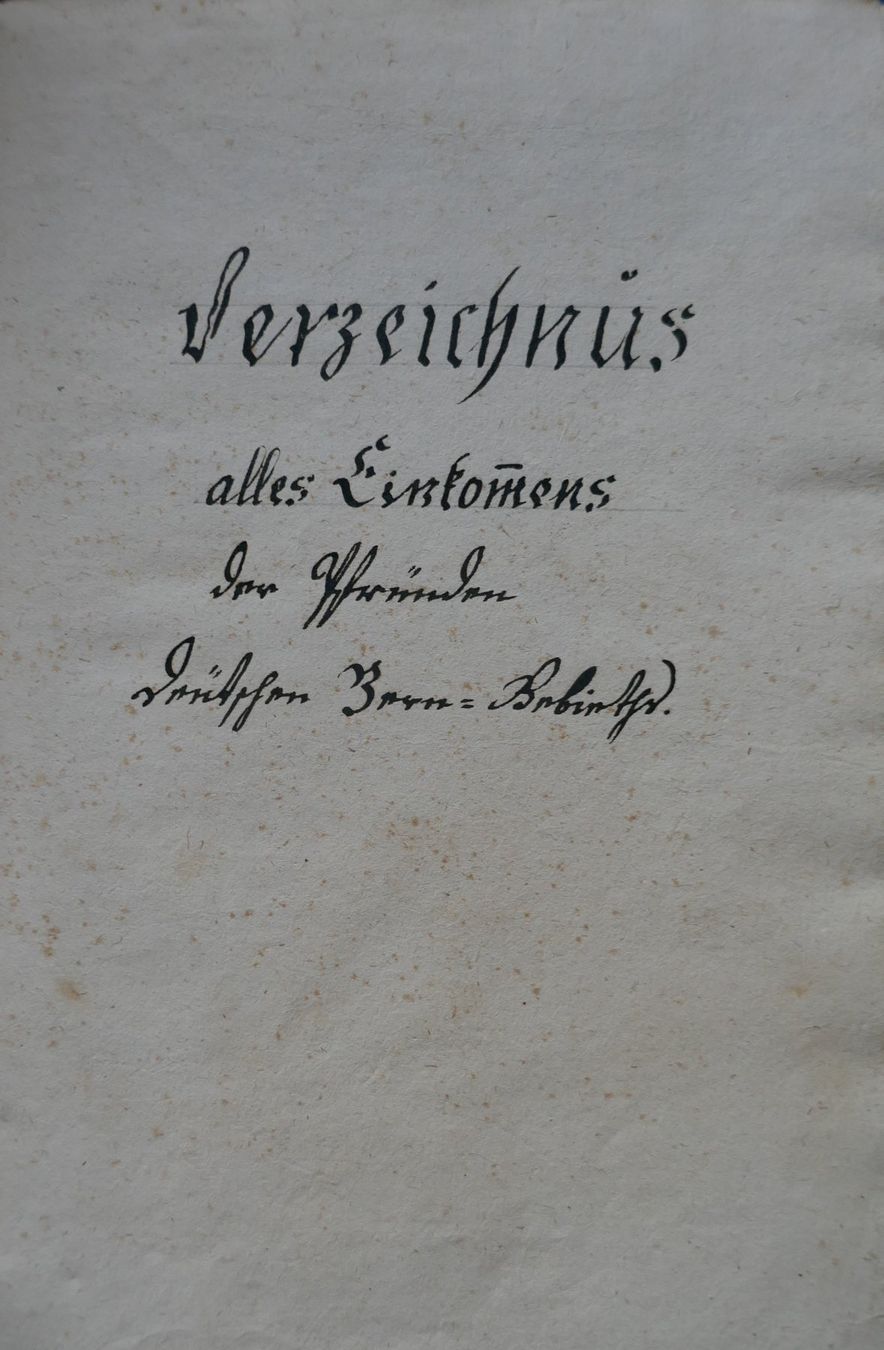 Verzeichnüs
alles Einkom̅ens
der Pfründen
deütschen Bern= Gebieths.